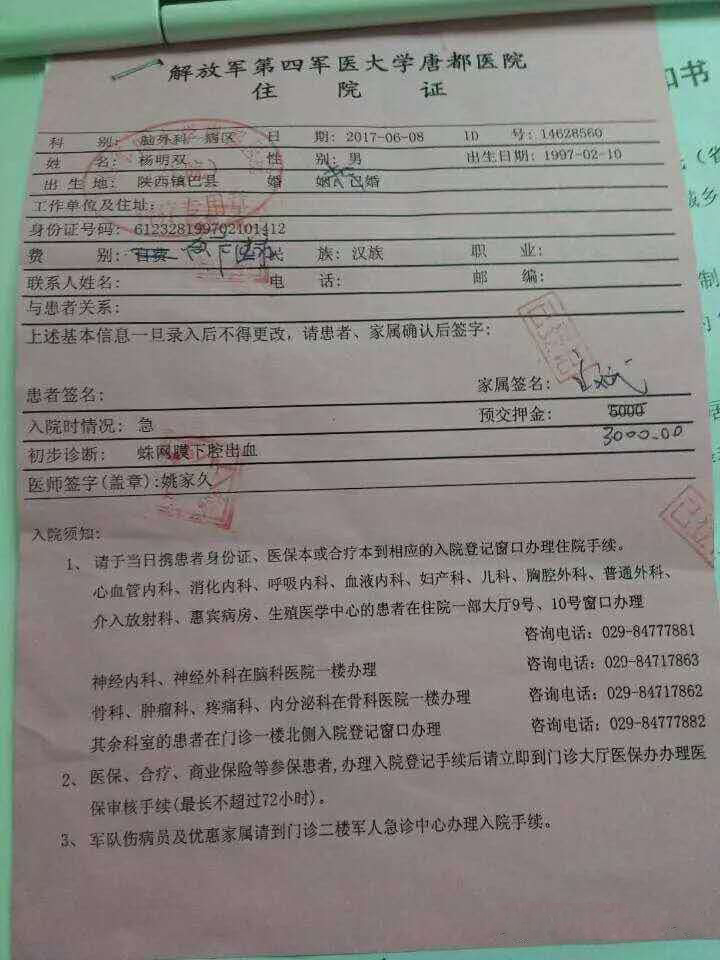 解放军第四军医大学唐都医院
住 院 证
科 别: 脑外科 病区 日 期: 2017-06-08 ID 号: 14628560
姓 名: 杨明双 性 别: 男 出生日期: 1997-02-10
出 生 地: 陕西镇巴县 婚 姻: 已婚
工作单位及住址:
身份证号码: 612328199702101412
费 别: 自费 民 族: 汉族 职 业:
联系人姓名: 电 话: 邮 编:
与患者关系:
上述基本信息一旦录入后不得更改，请患者、家属确认后签字:
患者签名: 家属签名:
入院时情况: 急 预交押金: 5000
3000.00
初步诊断: 蛛网膜下腔出血
医师签字(盖章):姚家久
入院须知:
1、请于当日携患者身份证、医保本或合疗本到相应的入院登记窗口办理住院手续。
心血管内科、消化内科、呼吸内科、血液内科、妇产科、儿科、胸腔外科、普通外科、
介入放射科、惠宾病房、生殖医学中心的患者在住院一部大厅9号、10号窗口办理
咨询电话：029-84777881
神经内科、神经外科在脑科医院一楼办理 咨询电话：029-84717863
骨科、肿瘤科、疼痛科、内分泌科在骨科医院一楼办理 咨询电话：029-84717862
其余科室的患者在门诊一楼北侧入院登记窗口办理 咨询电话：029-84777882
2、医保、合疗、商业保险等参保患者,办理入院登记手续后请立即到门诊大厅医保办办理医
保审核手续(最长不超过72小时)。
3、军队伤病员及优惠家属请到门诊二楼军人急诊中心办理入院手续。